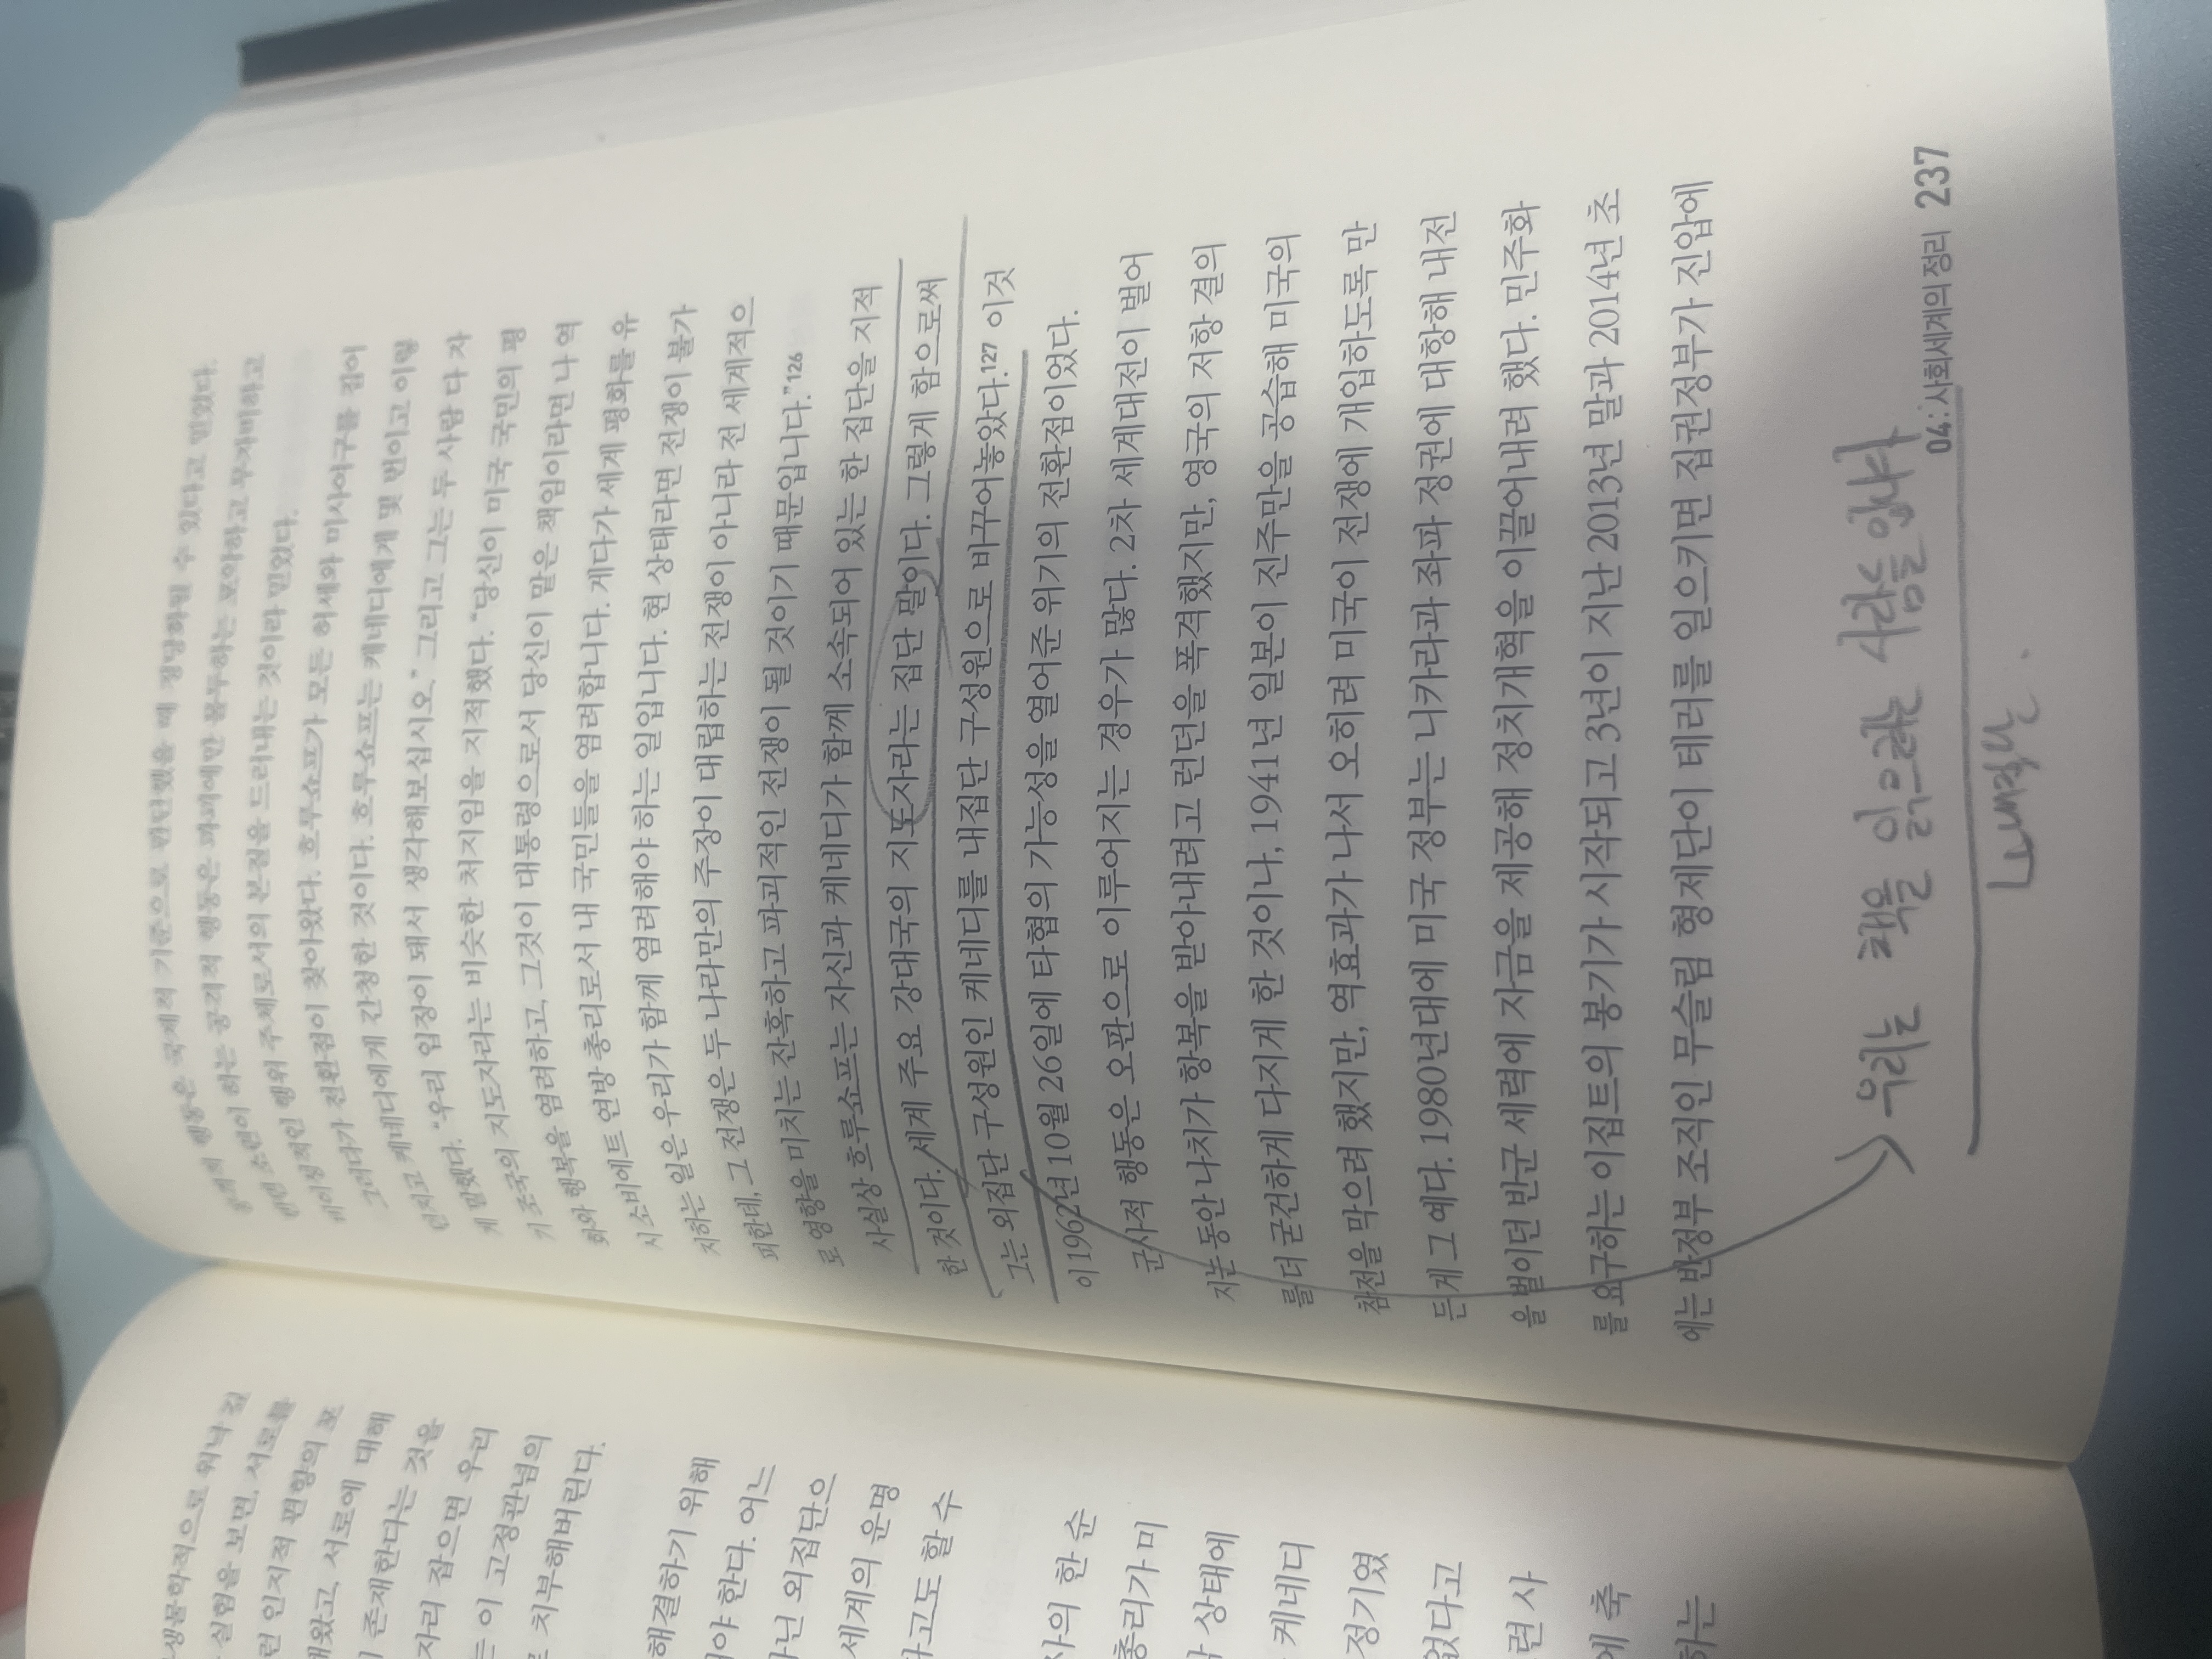 생물학적으로 워낙
실험을 보면, 서로를
런 인지적 편향의 포
서로에 대해
존재한다는 것을
자리 잡으면 우리
는 이 고정관념의
치부해버린다.
해결하기 위해
야 한다. 어느
닌 외집단으
세계의 운명
라고도 할 수
사의 한 순
총리가 미
상태에
케네디
정기였
없다고
련 사
에 축
하는
행동은 국제적 기준으로 판단했을 때 정당하될 수 있다고 믿었다.
반면 소련이 하는 공격적 행동은 파괴에만 몰두하는 포악하고 무자비하고
비이성적인 행위 주체로서의 본질을 드러내는 것이라 믿었다.
그러다가 전환점이 찾아왔다. 흐루쇼프가 모든 허세와 미사여구를 집어
던지고 케네디에게 간청한 것이다. 흐루쇼프는 케네디에게 몇 번이고 이렇
게 말했다. “우리 입장이 돼서 생각해보십시오.” 그리고 그는 두 사람 다 자
기 조국의 지도자라는 비슷한 처지임을 지적했다. “당신이 미국 국민의 평
화와 행복을 염려하고, 그것이 대통령으로서 당신이 맡은 책임이라면 나 역
시 소비에트 연방 총리로서 내 국민들을 염려합니다. 게다가 세계 평화를 유
지하는 일은 우리가 함께 염려해야 하는 일입니다. 현 상태라면 전쟁이 불가
피한데, 그 전쟁은 두 나라만의 주장이 대립하는 전쟁이 아니라 전 세계적으
로 영향을 미치는 잔혹하고 파괴적인 전쟁이 될 것이기 때문입니다.”126
사실상 흐루쇼프는 자신과 케네디가 함께 소속되어 있는 한 집단을 지적
한 것이다. 세계 주요 강대국의 지도자라는 집단 말이다. 그렇게 함으로써
그는 외집단 구성원인 케네디를 내집단 구성원으로 바꾸어놓았다.127 이것
이 1962년 10월 26일에 타협의 가능성을 열어준 위기의 전환점이었다.
군사적 행동은 오판으로 이루어지는 경우가 많다. 2차 세계대전이 벌어
지는 동안 나치가 항복을 받아내려고 런던을 폭격했지만, 영국의 저항 결의
를 더 굳건하게 다지게 한 것이나, 1941년 일본이 진주만을 공습해 미국의
참전을 막으려 했지만, 역효과가 나서 오히려 미국이 전쟁에 개입하도록 만
든 게 그 예다. 1980년대에 미국 정부는 니카라과 좌파 정권에 대항해 내전
을 벌이던 반군 세력에 자금을 제공해 정치개혁을 이끌어내려 했다. 민주화
를 요구하는 이집트의 봉기가 시작되고 3년이 지난 2013년 말과 2014년 초
에는 반정부 조직인 무슬림 형제단이 테러를 일으키면 집권정부가 진압에
우리는 책을 읽으려는 사람들 앞에서
04: 사회세계의 정리 237